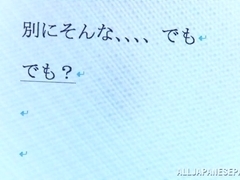 別にそんな、、、、でも
でも？
ALLJAPANESEPA